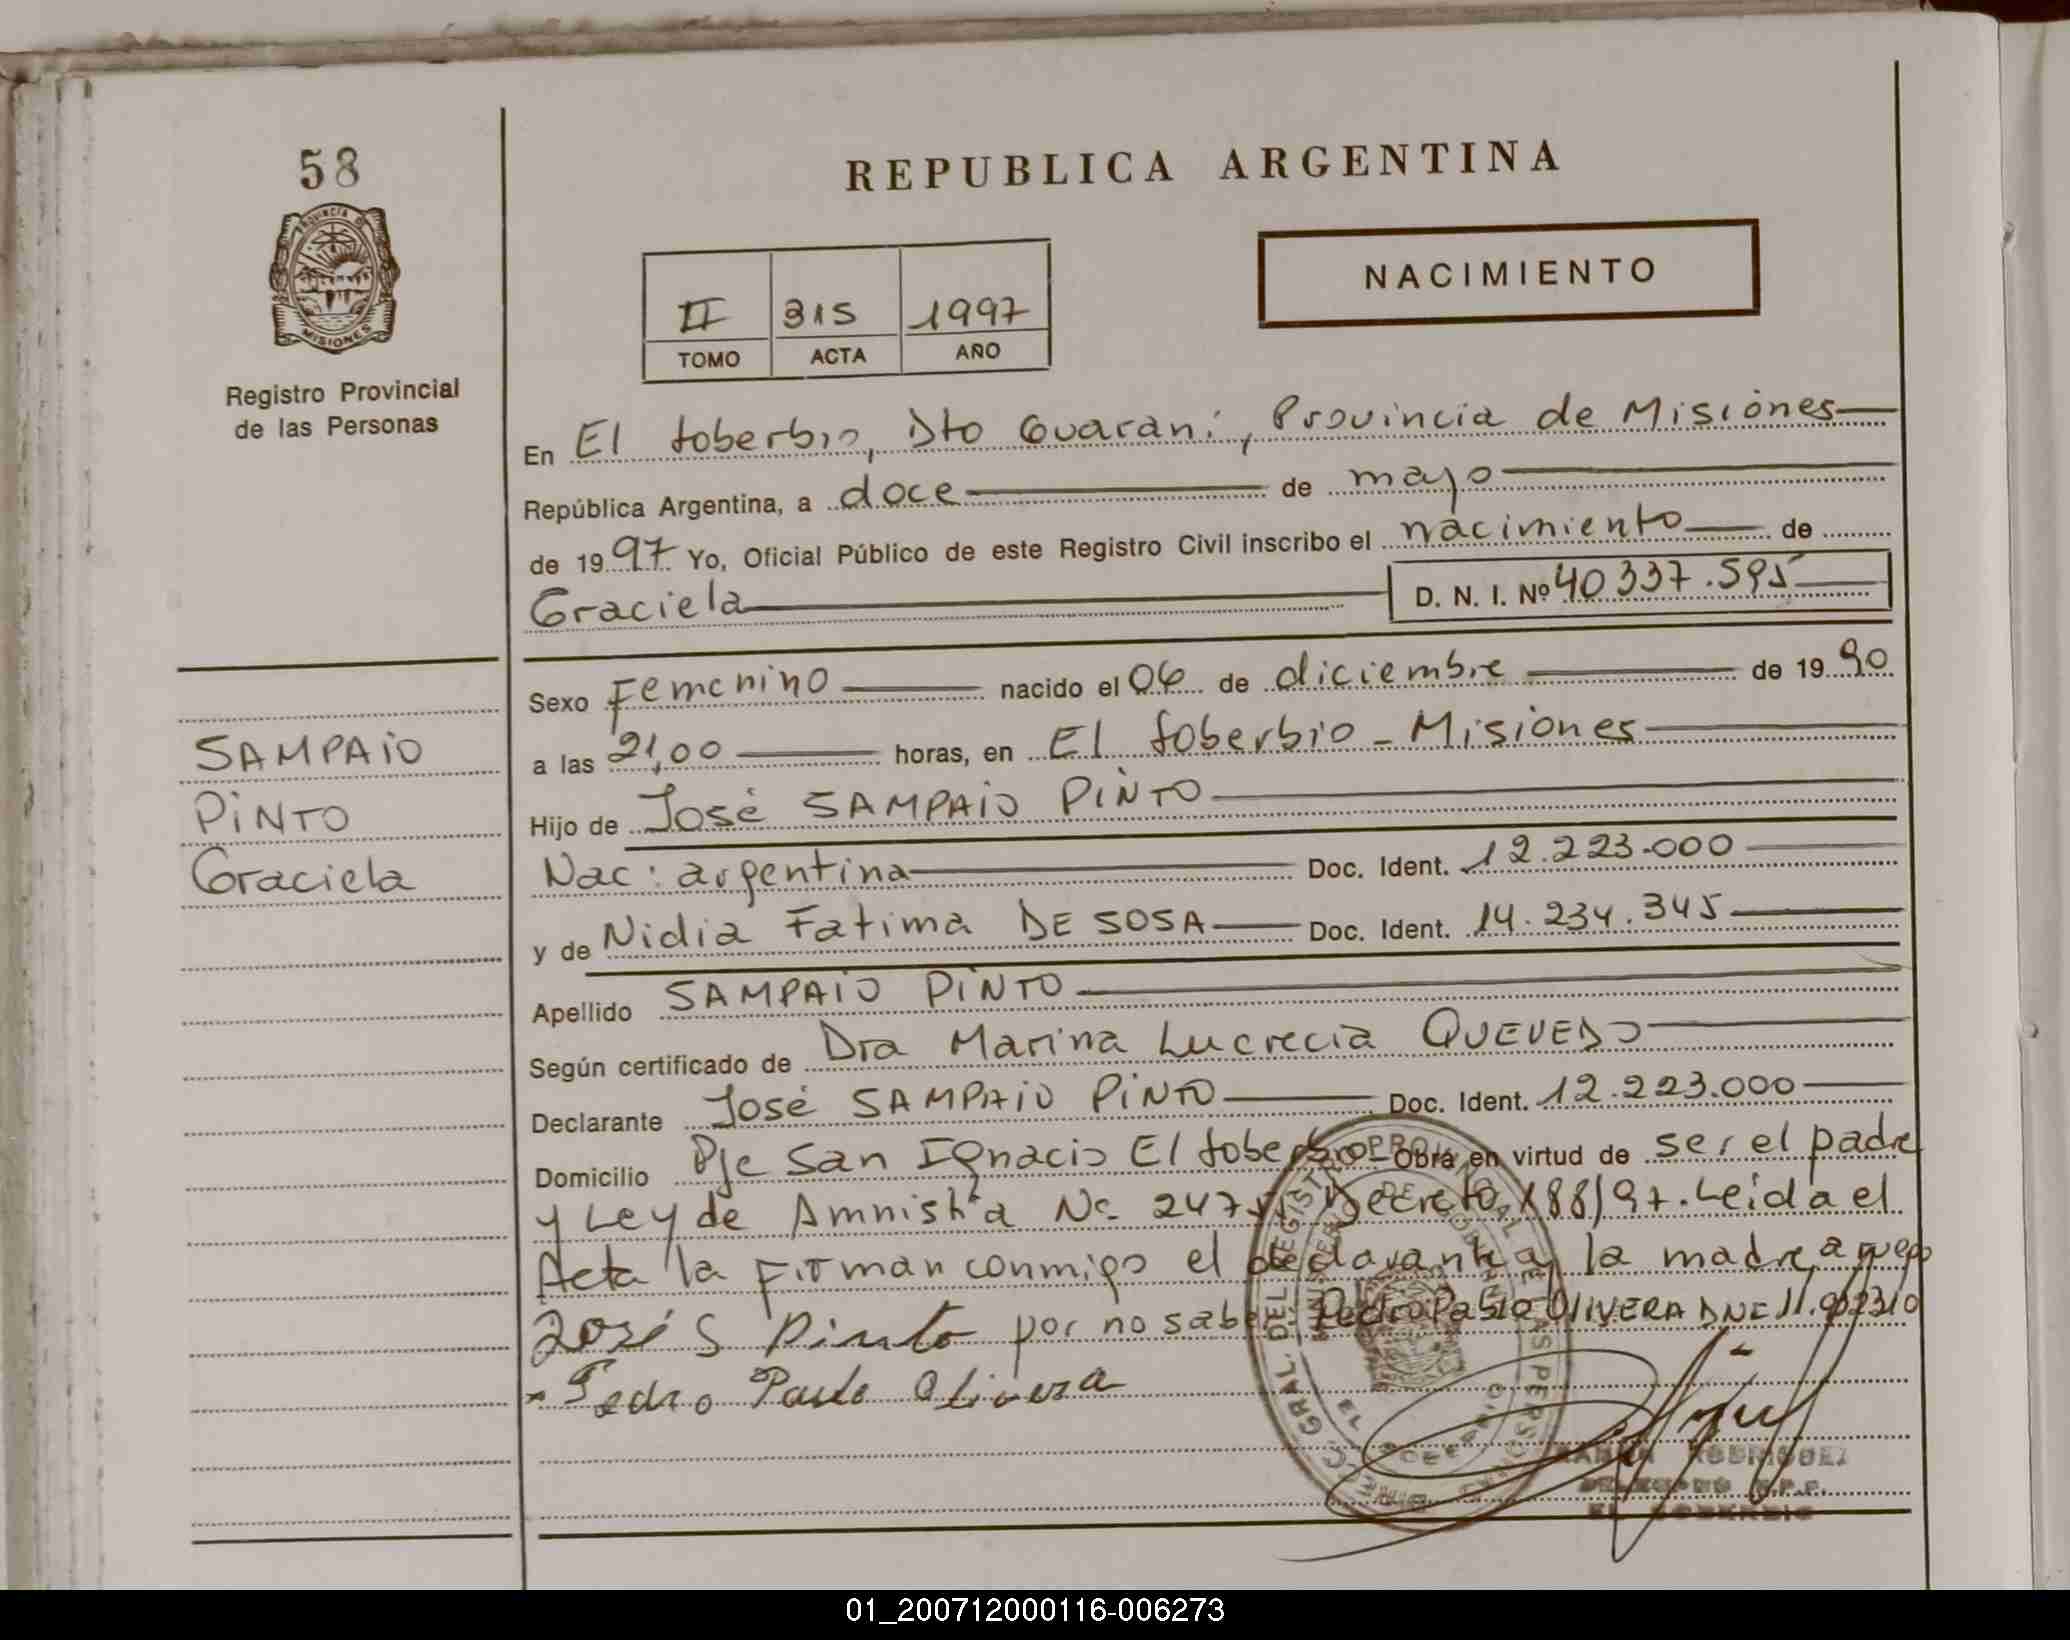 58
REPUBLICA ARGENTINA
PROVINCIA DE MISIONES
Registro Provincial
de las Personas
II 315 1997
TOMO ACTA AÑO
NACIMIENTO
En El Soberbio, Dto Guaraní, Provincia de Misiones
República Argentina, a doce de mayo
de 1997 Yo, Oficial Público de este Registro Civil inscribo el nacimiento de
Graciela D. N. I. Nº 40337.595
SAMPAIO
PINTO
Graciela
Sexo Femenino nacido el 06 de diciembre de 1990
a las 21,00 horas, en El Soberbio - Misiones
Hijo de José SAMPAIO PINTO
Nac: argentina Doc. Ident. 12.223.000
y de Nidia Fatima DE SOSA Doc. Ident. 14.234.345
Apellido SAMPAIO PINTO
Según certificado de Dra Marina Lucrecia QUEVEDO
Declarante José SAMPAIO PINTO Doc. Ident. 12.223.000
Domicilio Pje San Ignacio El Soberbio Obra en virtud de ser el padre
y Ley de Amnistía Nº 2475 Decreto 188/97. Leida el
Acta la Firman conmigo el declarante y la madre a ruego
José S Pinto por no saber Pedro Pablo OLIVERA DNI 11.
Pedro Paulo Olivera
RODRIGUEZ
DELEGADO R.P.P.
EL SOBERBIO
01_200712000116-006273